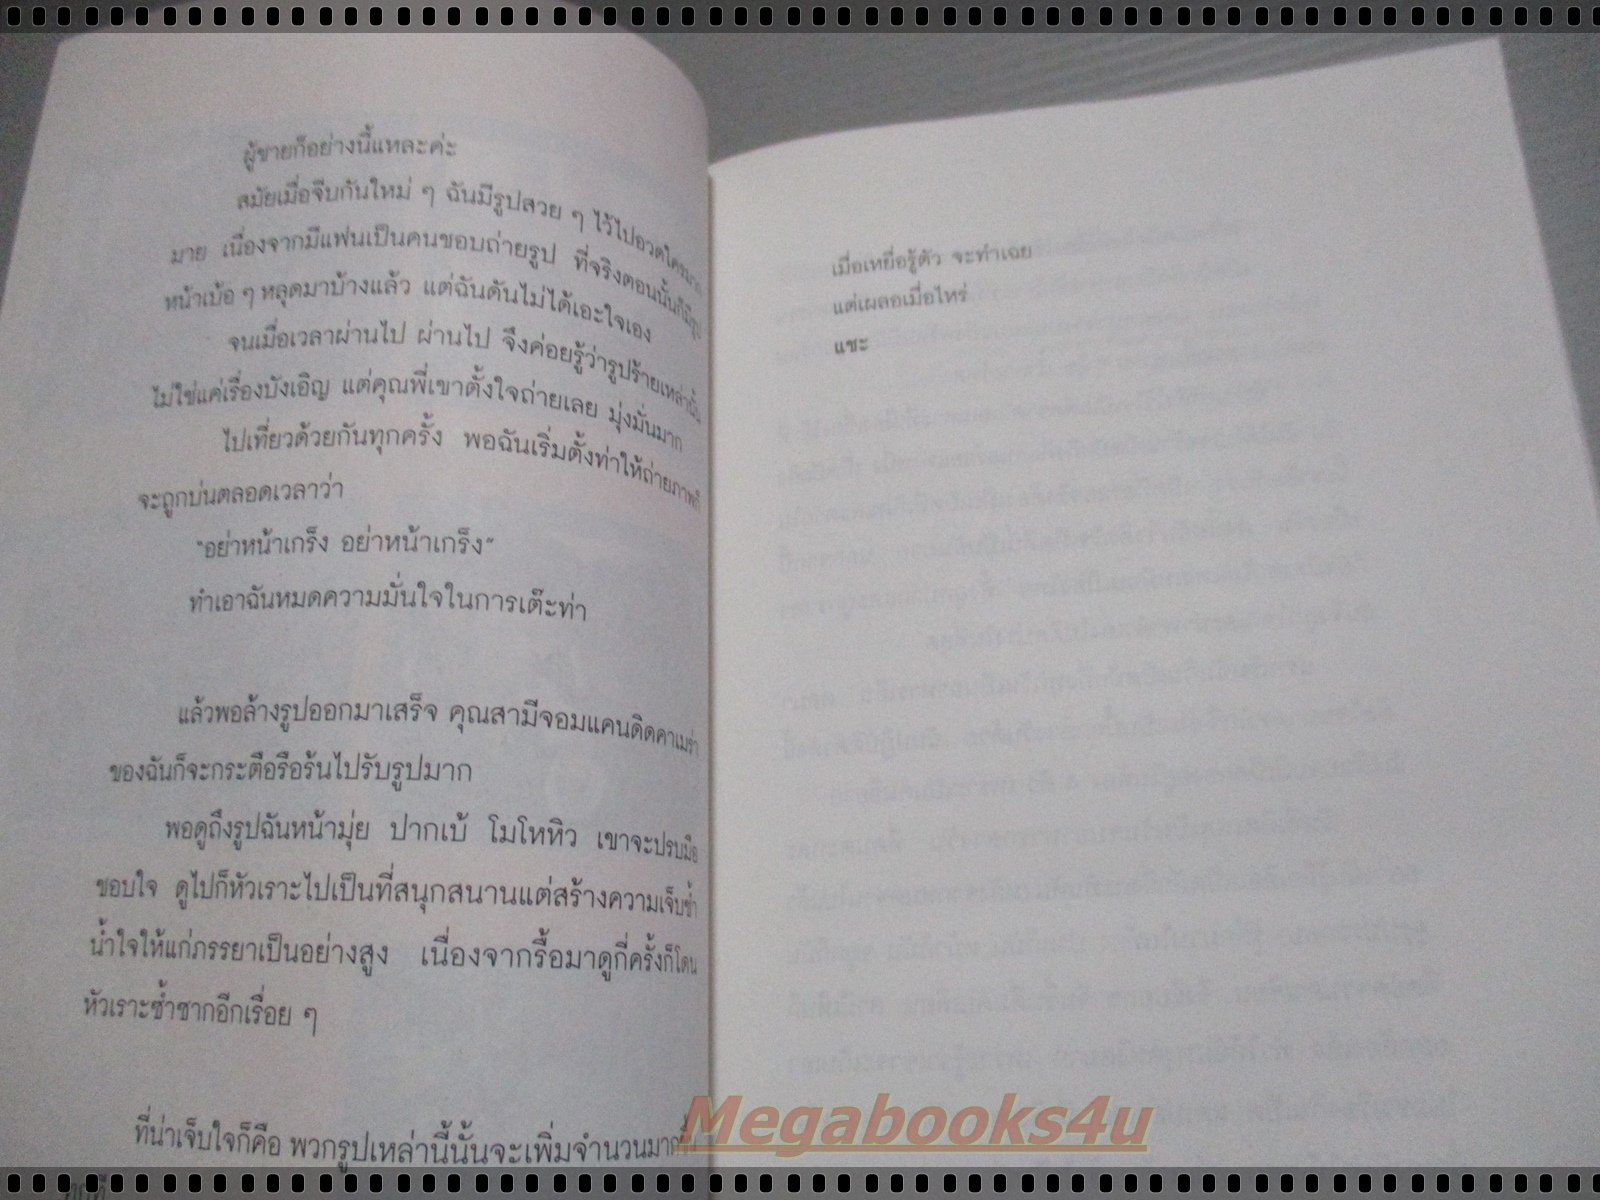 ผู้ชายก็อย่างนี้แหละค่ะ
สมัยเมื่อจีบกันใหม่ ๆ ฉันมีรูปสวย ๆ ไว้ไปอวดใครมาก
มาย เนื่องจากมีแฟนเป็นคนชอบถ่ายรูป ที่จริงตอนนั้นก็มีรูป
หน้าเบ้อ ๆ หลุดมาบ้างแล้ว แต่ฉันดันไม่ได้เอะใจเอง
จนเมื่อเวลาผ่านไป ผ่านไป จึงค่อยรู้ว่ารูปร้ายเหล่านั้น
ไม่ใช่แค่เรื่องบังเอิญ แต่คุณพี่เขาตั้งใจถ่ายเลย มุ่งมั่นมาก
ไปเที่ยวด้วยกันทุกครั้ง พอฉันเริ่มตั้งท่าให้ถ่ายภาพก็
จะถูกบ่นตลอดเวลาว่า
"อย่าหน้าเกร็ง อย่าหน้าเกร็ง"
ทำเอาฉันหมดความมั่นใจในการเต๊ะท่า
แล้วพอล้างรูปออกมาเสร็จ คุณสามีจอมแคนดิดคาเมร่า
ของฉันก็จะกระตือรือร้นไปรับรูปมาก
พอดูถึงรูปฉันหน้ามุ่ย ปากเบ้ โมโหหิว เขาจะปรบมือ
ชอบใจ ดูไปก็หัวเราะไปเป็นที่สนุกสนานแต่สร้างความเจ็บช้ำ
น้ำใจให้แก่ภรรยาเป็นอย่างสูง เนื่องจากรื้อมาดูกี่ครั้งก็โดน
หัวเราะซ้ำซากอีกเรื่อย ๆ
ที่น่าเจ็บใจก็คือ พวกรูปเหล่านี้นั้นจะเพิ่มจำนวนมากขึ้น
เมื่อเหยื่อรู้ตัว จะทำเฉย
แต่เผลอเมื่อไหร่
แชะ
Megabooks4u